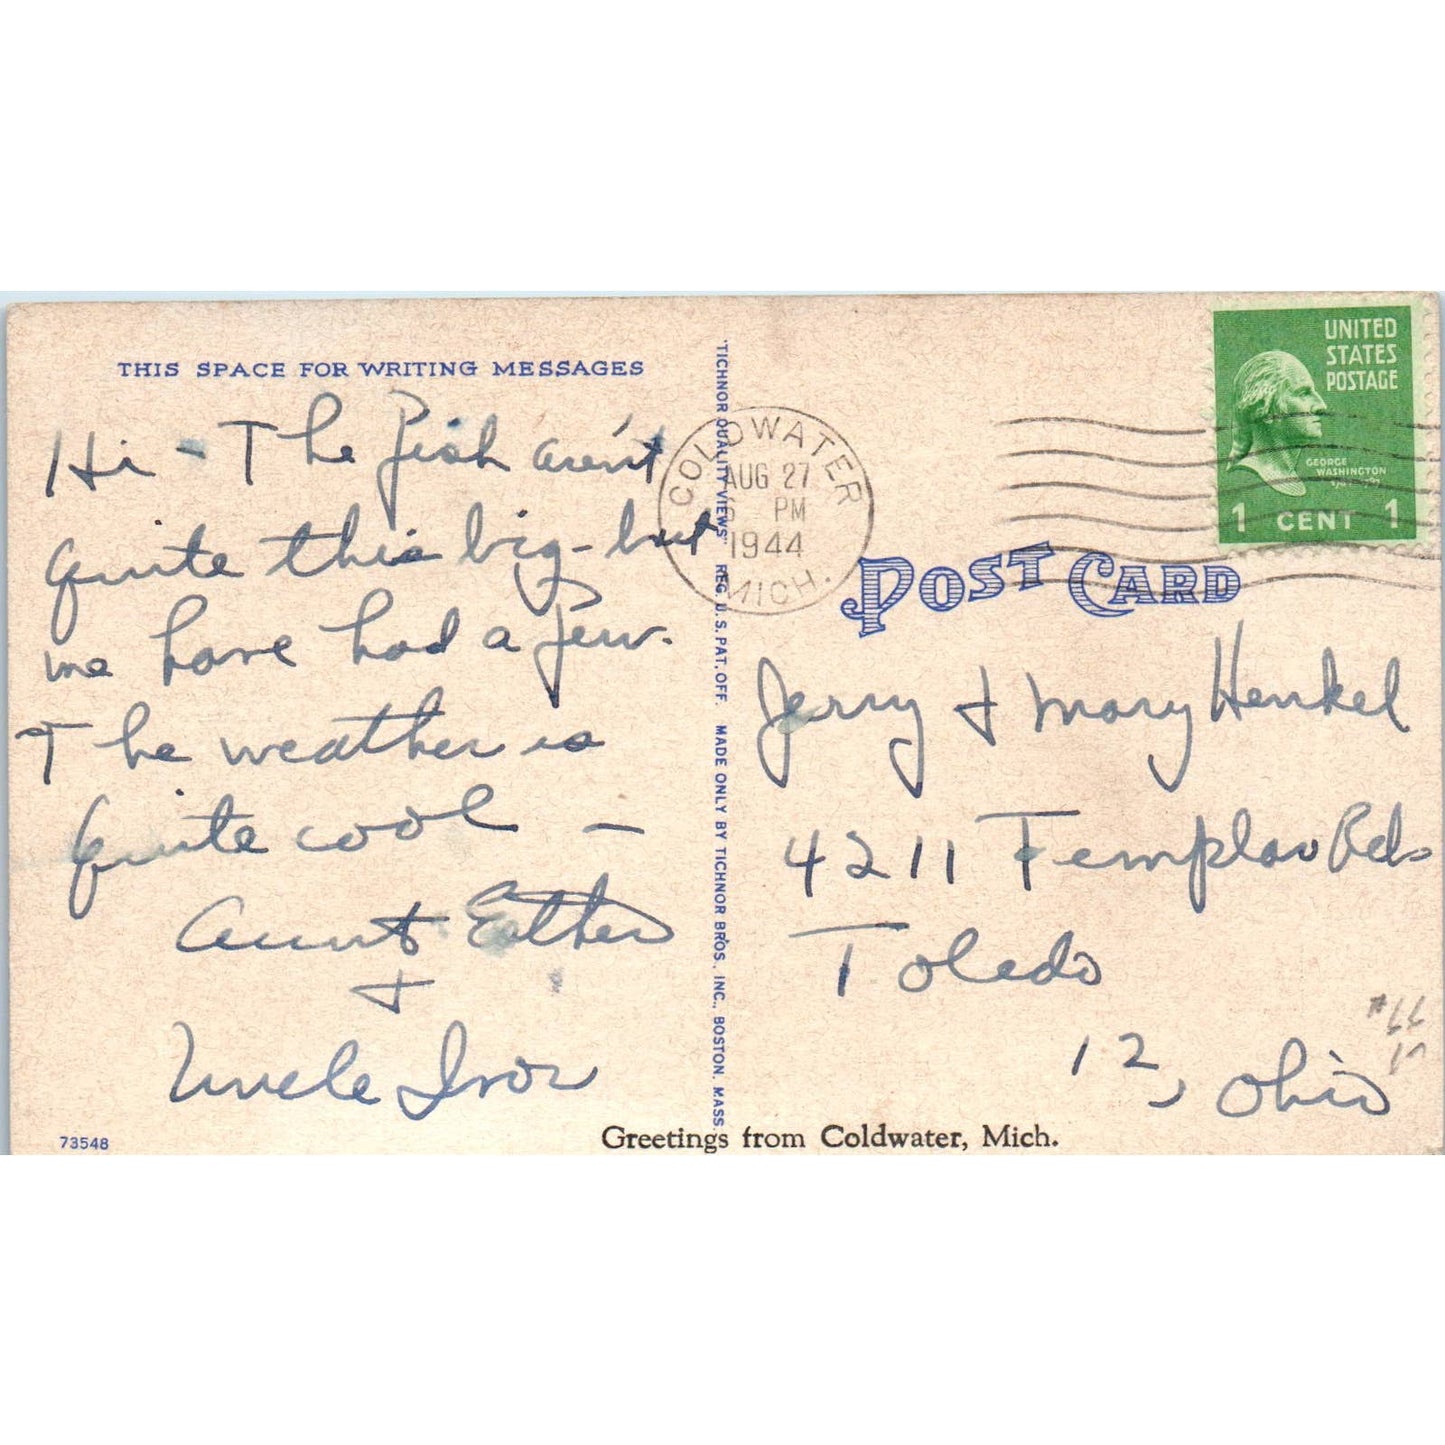 THIS SPACE FOR WRITING MESSAGES
Hi - The fish aren't
quite this big - but
we have had a few.
The weather is
quite cool -
Aunt Esther
+
Uncle Ivor
73548
"TICHNOR QUALITY VIEWS" REG. U.S. PAT. OFF. MADE ONLY BY TICHNOR BROS., INC., BOSTON, MASS.
COLDWATER
AUG 27
6 PM
1944
MICH.
UNITED
STATES
POSTAGE
GEORGE
WASHINGTON
1 CENT 1
POST CARD
Jerry + Mary Henkel
4211 Templar Rd.
Toledo
12, Ohio
Greetings from Coldwater, Mich.